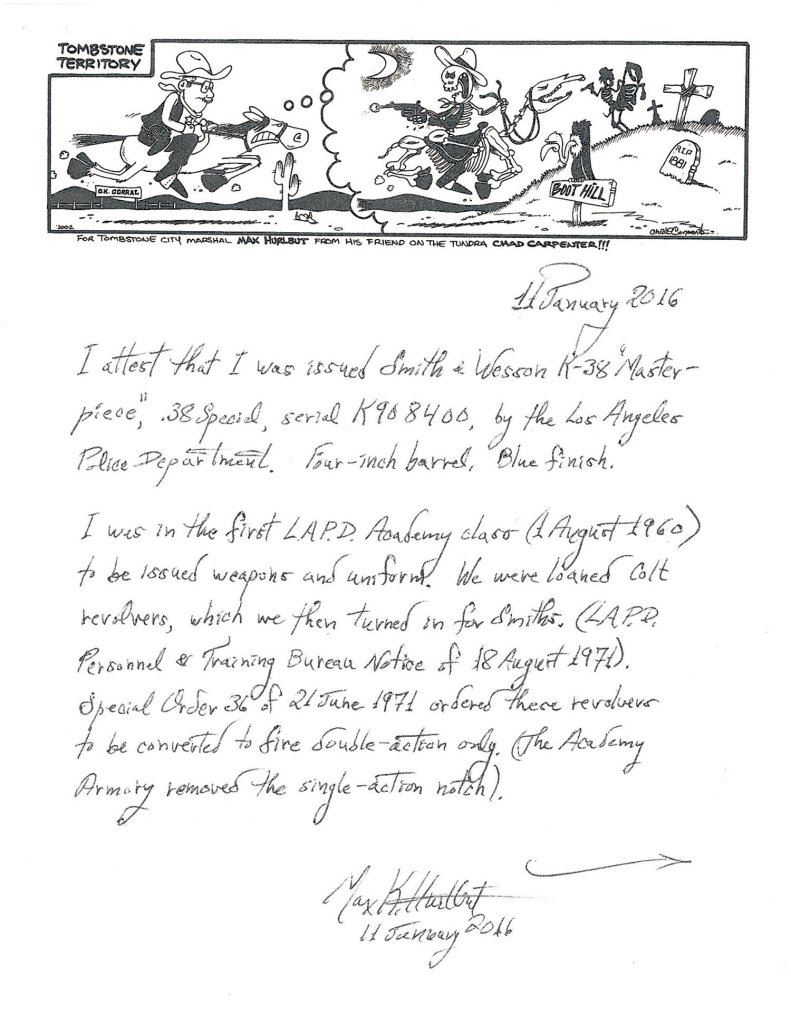 TOMBSTONE
TERRITORY
O.K. CORRAL
R.I.P.
1881
BOOT HILL
2002
Chad Carpenter
FOR TOMBSTONE CITY MARSHAL MAX HURLBUT FROM HIS FRIEND ON THE TUNDRA CHAD CARPENTER!!!
11 January 2016
I attest that I was issued Smith & Wesson K-38 "Master-
piece", .38 Special, serial K908400, by the Los Angeles
Police Department. Four-inch barrel, Blue finish.
I was in the first L.A.P.D. Academy class (1 August 1960)
to be issued weapons and uniform. We were loaned Colt
revolvers, which we then turned in for Smiths. (L.A.P.D.
Personnel & Training Bureau Notice of 18 August 1971).
Special Order 36 of 21 June 1971 ordered these revolvers
to be converted to fire double-action only. (The Academy
Armory removed the single-action notch).
Max K. Hurlbut
11 January 2016